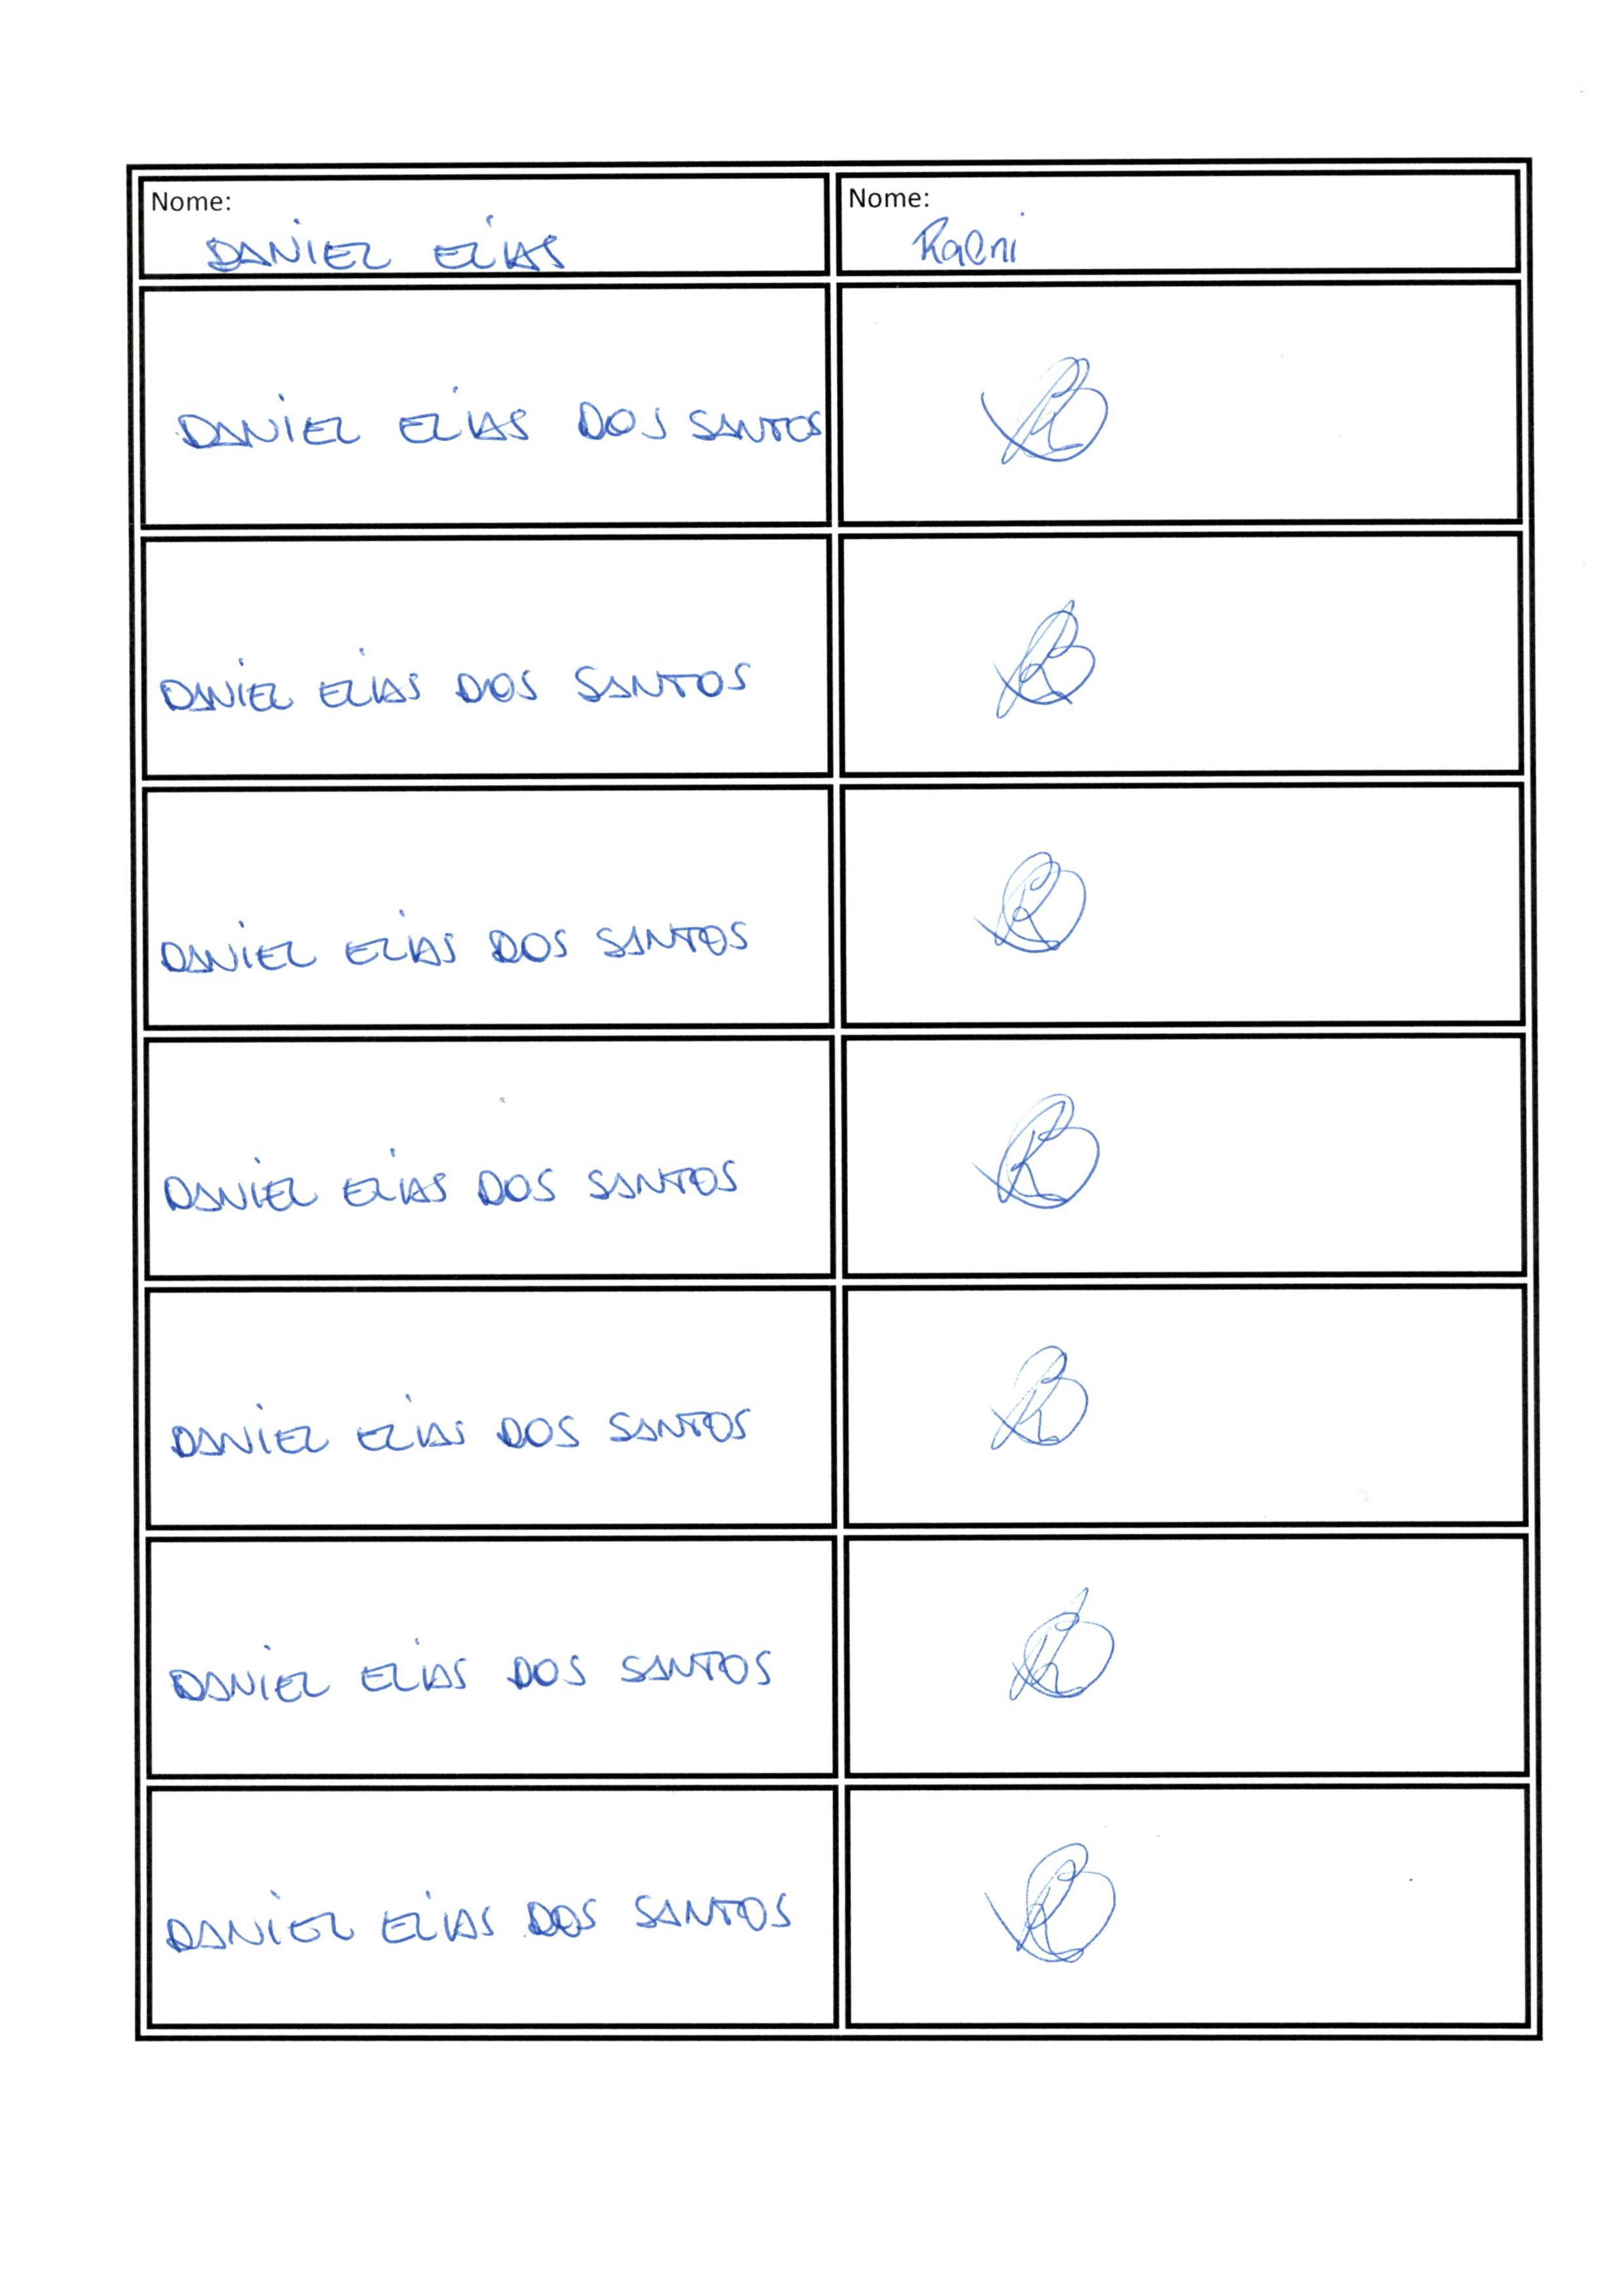 Nome:
DANIEL ELIAS
Nome:
Ralni
DANIEL ELIAS DOS SANTOS
DANIEL ELIAS DOS SANTOS
DANIEL ELIAS DOS SANTOS
DANIEL ELIAS DOS SANTOS
DANIEL ELIAS DOS SANTOS
DANIEL ELIAS DOS SANTOS
DANIEL ELIAS DOS SANTOS